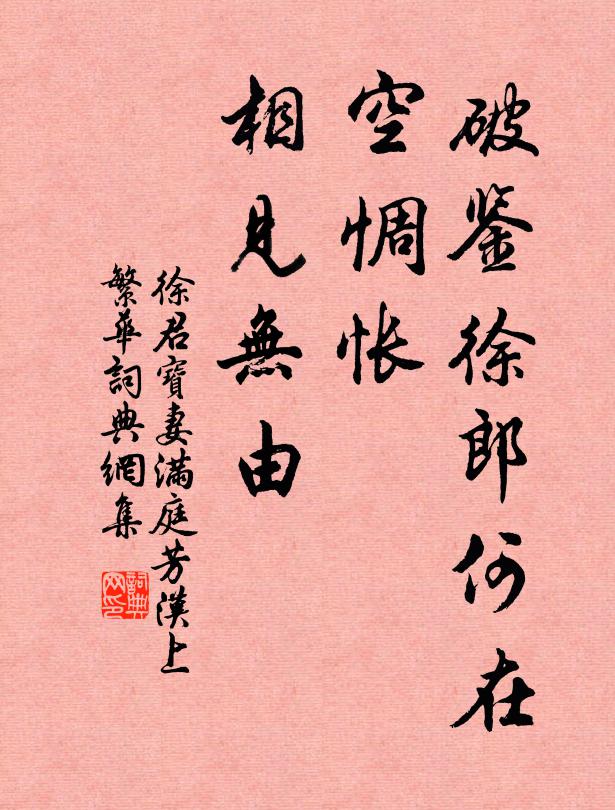 破鉴徐郎何在
空惆怅
相見無由
徐君寶妻满庭芳漢上
繁华詞典網集
詞典网印